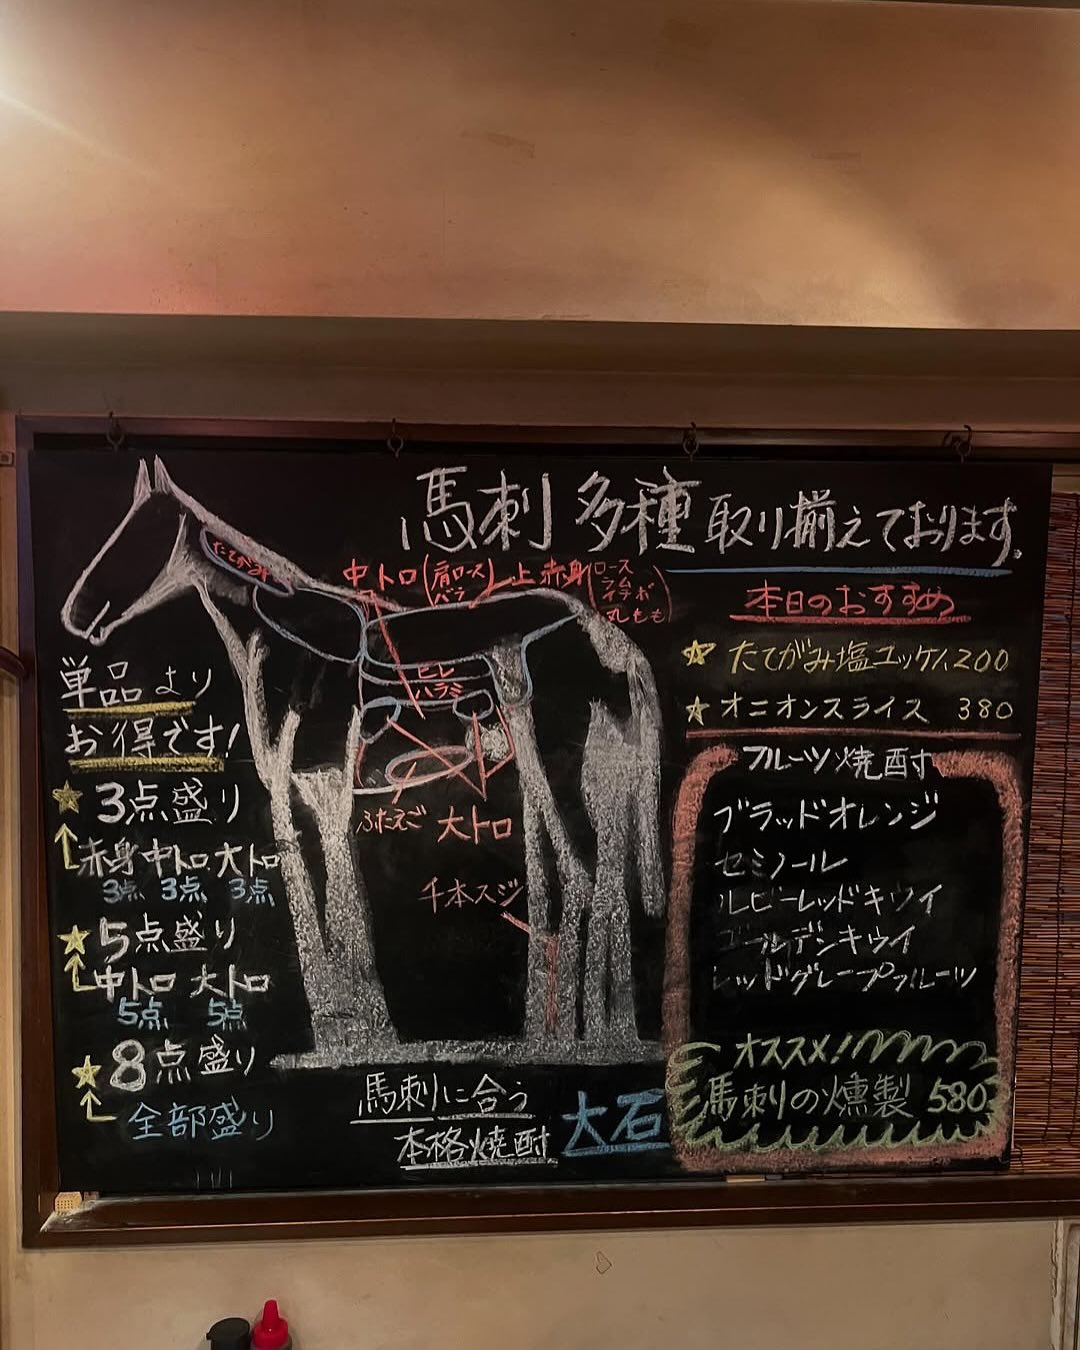 馬刺 多種 取り揃えております。
たてがみ
中トロ(肩ロース バラ) 上赤身(ロース ラム イチボ 丸もも)
ヒレ
ハラミ
ふたえご 大トロ
千本スジ
単品より
お得です!
☆3点盛り
赤身 中トロ 大トロ
3点 3点 3点
☆5点盛り
中トロ 大トロ
5点 5点
☆8点盛り
全部盛り
馬刺に合う
本格焼酎 大石
本日のおすすめ
☆たてがみ塩ユッケ1,200
☆オニオンスライス 380
フルーツ焼酎
ブラッドオレンジ
セミノール
ルビーレッドキウイ
ゴールデンキウイ
レッドグレープフルーツ
オススメ!
馬刺りの燻製 580